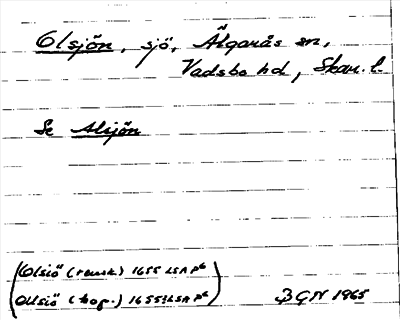 Olsjön, sjö, Älgarås sn,
Vadsbo hd, Skar. l.
Se Alsjön
(Olsiö (räwsk) 1655 LSA P6)
(Ollsiö (kop.) 1655 LSA P6)
BGN 1965